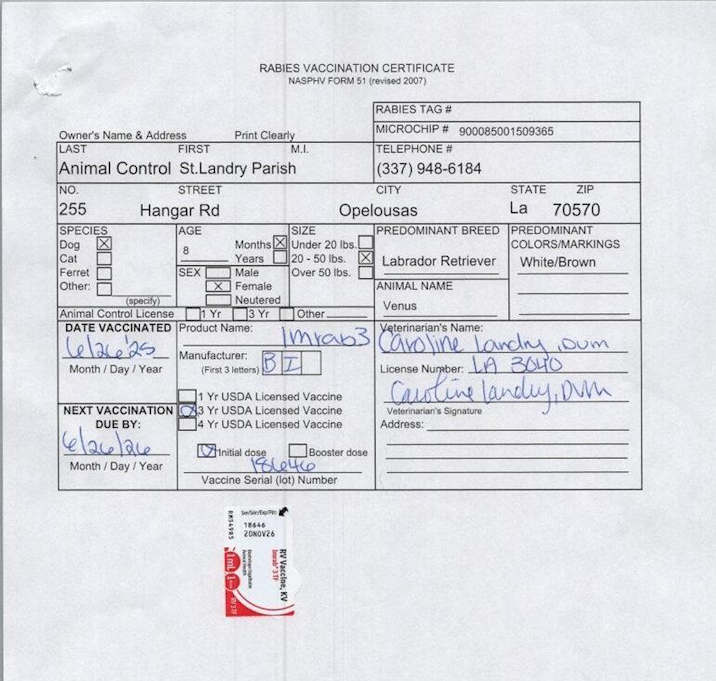 RABIES VACCINATION CERTIFICATE
NASPHV FORM 51 (revised 2007)
RABIES TAG #
MICROCHIP # 900085001509365
Owner's Name & Address Print Clearly
LAST FIRST M.I. TELEPHONE #
Animal Control St.Landry Parish (337) 948-6184
NO. STREET CITY STATE ZIP
255 Hangar Rd Opelousas La 70570
SPECIES AGE SIZE PREDOMINANT BREED PREDOMINANT COLORS/MARKINGS
Dog 8 Months Under 20 lbs.
Cat Years 20 - 50 lbs. Labrador Retriever White/Brown
Ferret SEX Male Over 50 lbs.
Other: Female ANIMAL NAME
(specify) Neutered Venus
Animal Control License 1 Yr 3 Yr Other
DATE VACCINATED Product Name: Imrab3 Veterinarian's Name:
6/26/25 Caroline Landry, DVM
Month / Day / Year Manufacturer: B I License Number: LA 3040
(First 3 letters)
1 Yr USDA Licensed Vaccine Caroline Landry, DVM
NEXT VACCINATION 3 Yr USDA Licensed Vaccine Veterinarian's Signature
DUE BY: 4 Yr USDA Licensed Vaccine Address:
6/26/26 Initial dose Booster dose
Month / Day / Year 18646
Vaccine Serial (lot) Number
Ser/Sér/Exp/Pér)
18646
20NOV26
RV Vaccine, KV
Imrab® 3 TF
1mL